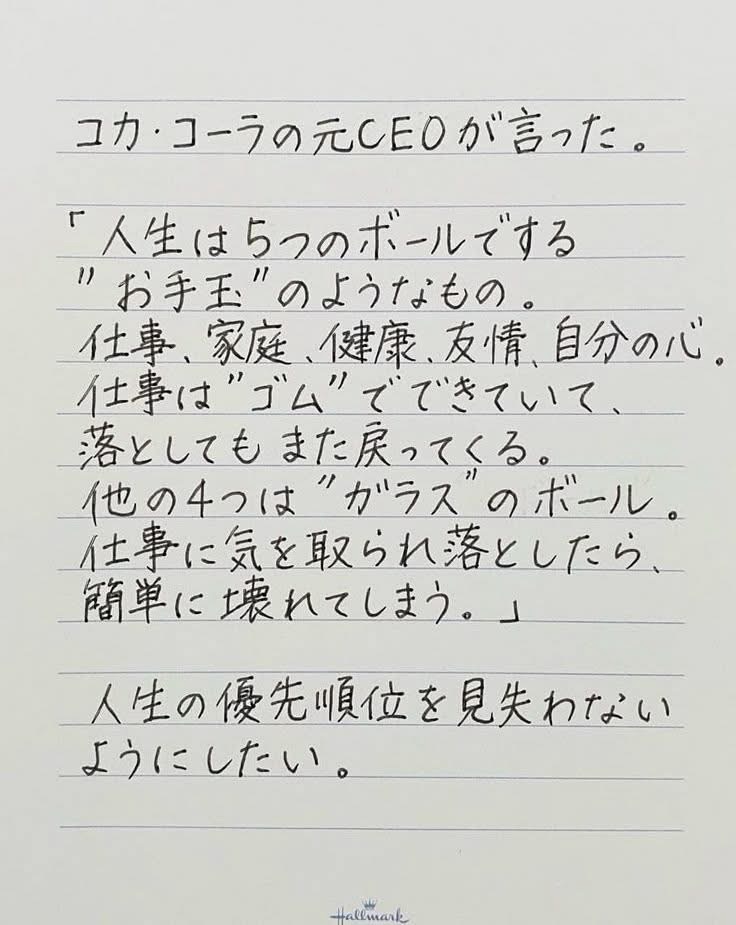 コカ・コーラの元CEOが言った。
「人生は5つのボールでする
"お手玉"のようなもの。
仕事、家庭、健康、友情、自分の心。
仕事は"ゴム"でできていて、
落としてもまた戻ってくる。
他の4つは"ガラス"のボール。
仕事に気を取られ落としたら、
簡単に壊れてしまう。」
人生の優先順位を見失わない
ようにしたい。
Hallmark